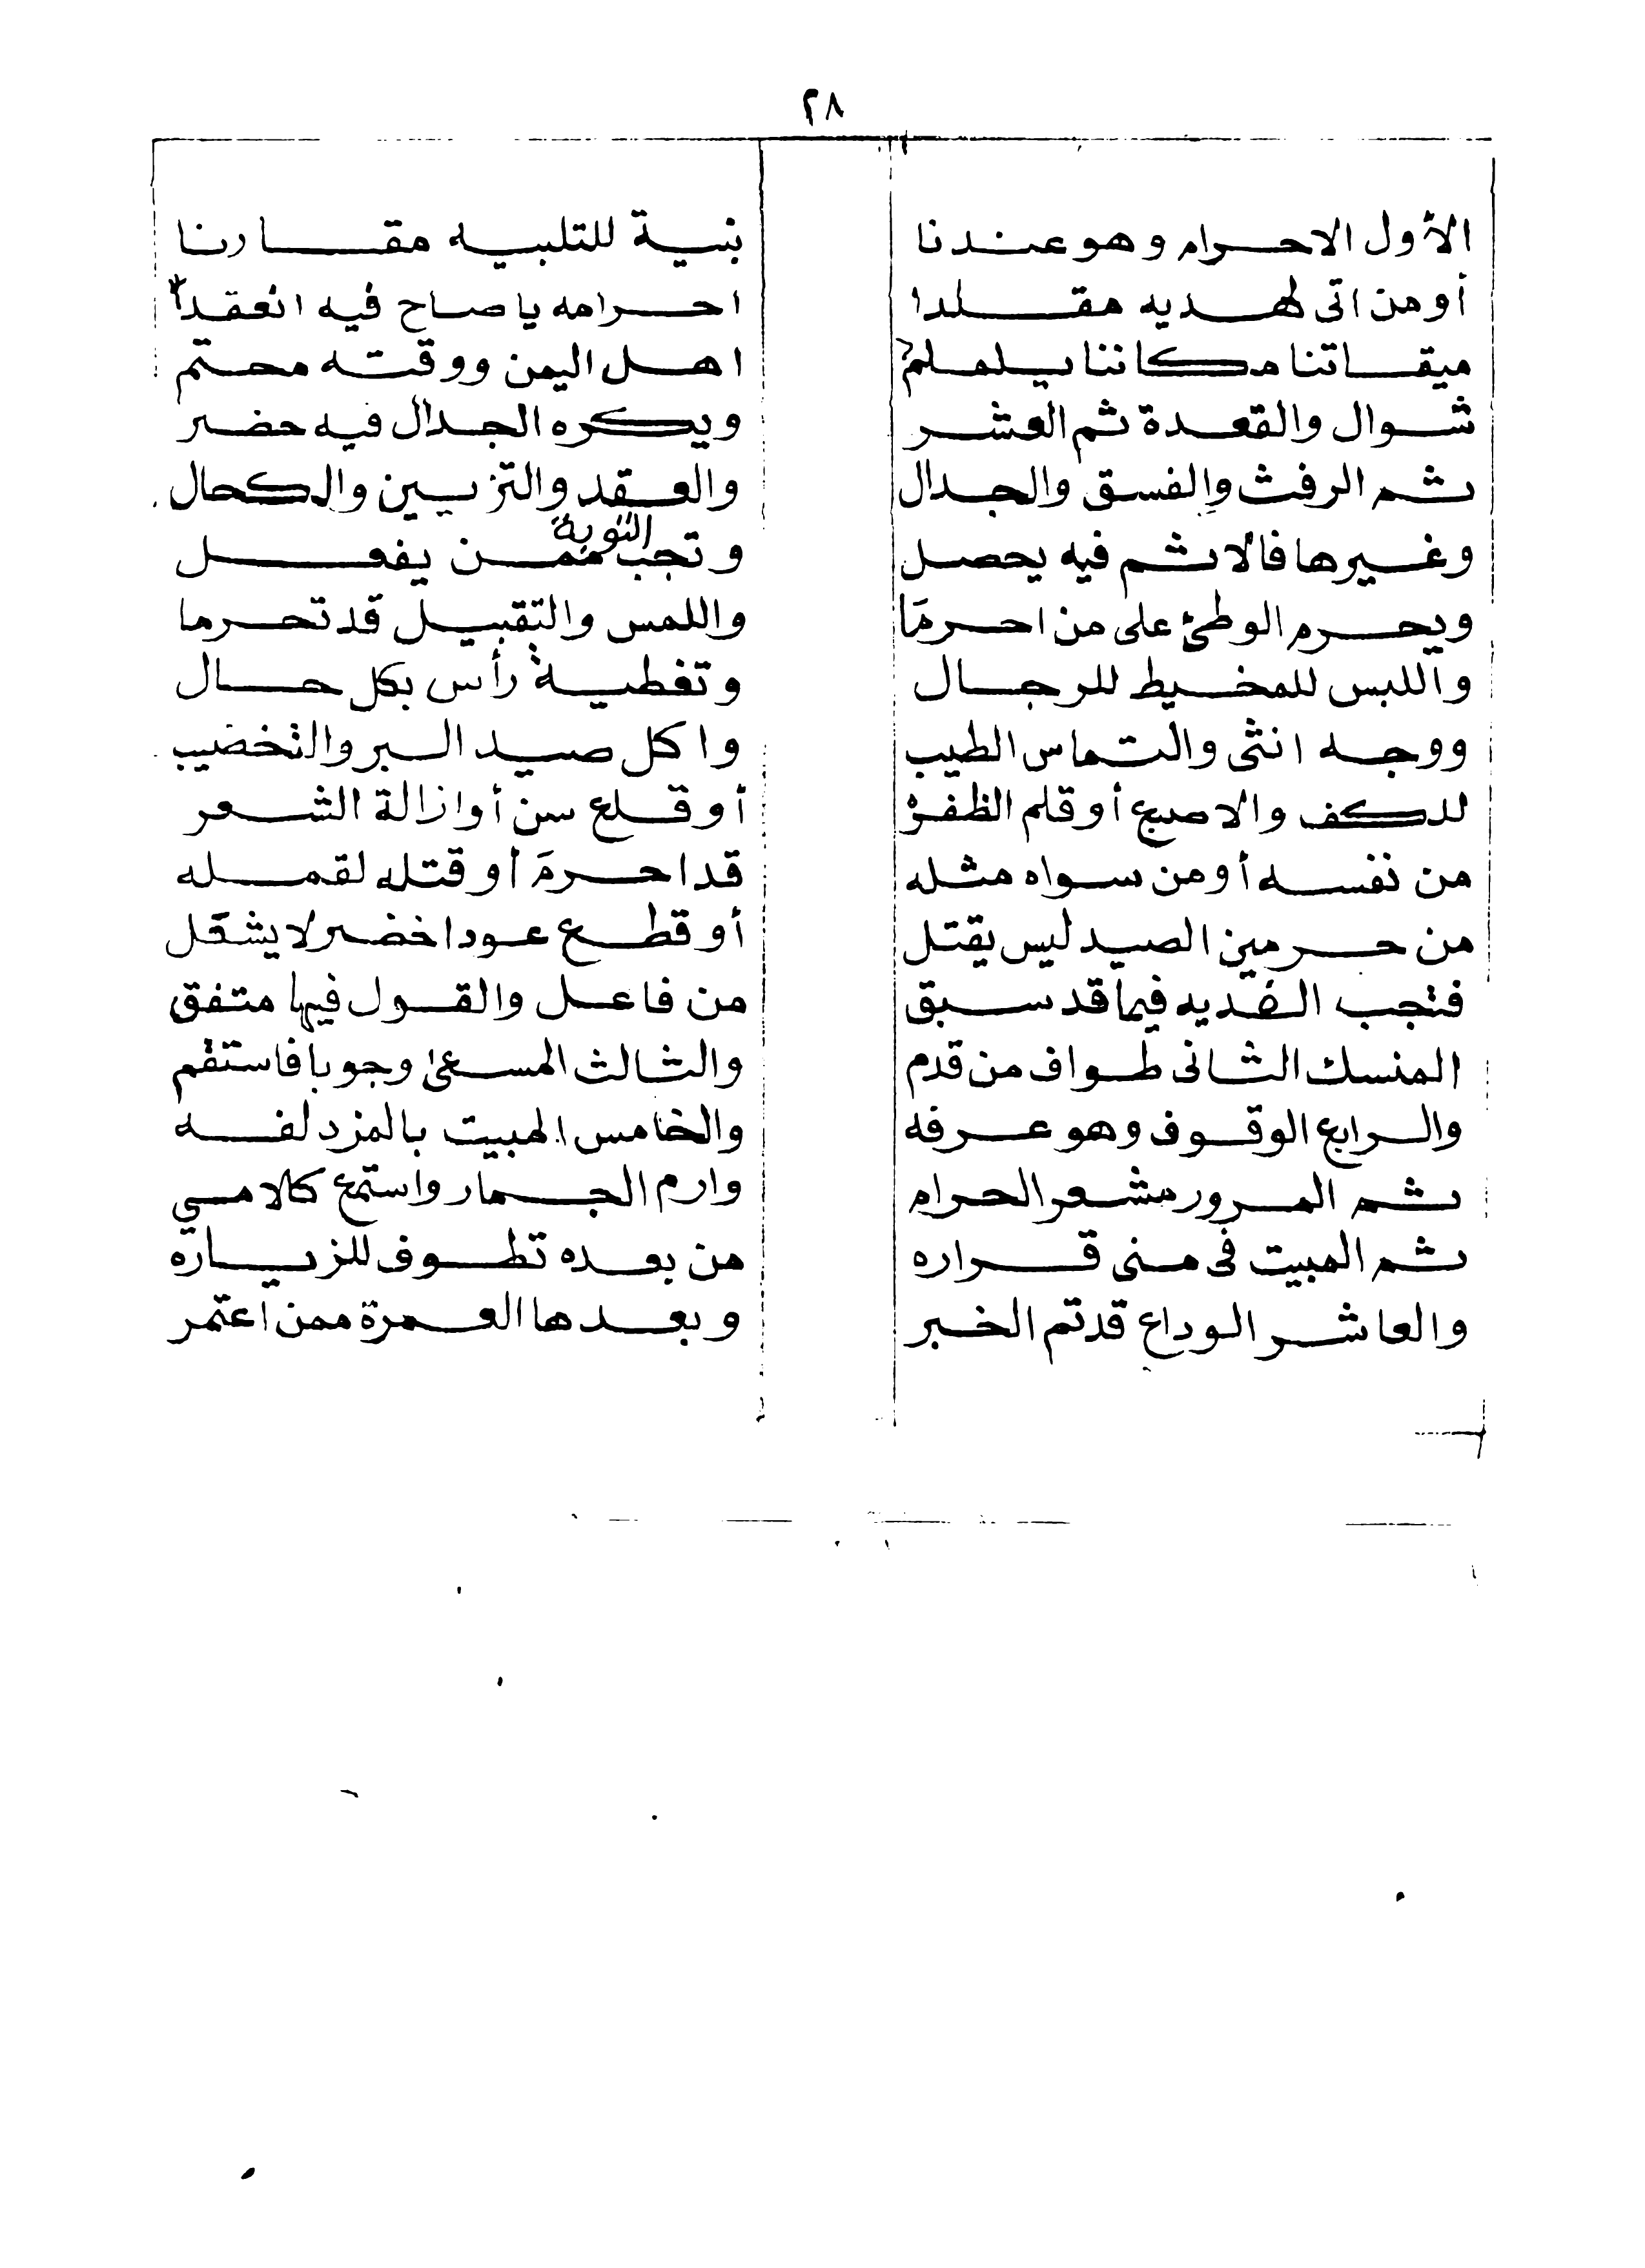 ٢٨
الأول الاحرام وهو عندنا بنية للتلبيه مقارنا
أو من اتى لهديه مقلدا احرامه ياصاح فيه انعقدا
ميقاتنا مكاننا يلملم اهل اليمن ووقته محتم
شوال والقعدة ثم العشر ويكره الجدال فيه حضر
ثم الرفث والفسق والجدال والعقد والتزيين والكحال
وغيرها فالاثم فيه يحصل وتجب التوبة ممن يفعل
ويحرم الوطئ على من احرمَا واللمس والتقبيل قد تحرما
واللبس للمخيط للرجال وتغطية رأس بكل حال
ووجه انثى والتماس الطيب واكل صيد البر والتخضيب
لدكف والاصبع أو قلم الظفر أو قلع سن أو ازالة الشعر
من نفسه أو من سواه مثله قد احرمَ أو قتله لقمله
من حرمين الصيد ليس يقتل أو قطع عود اخضر لا يشتل
فتجب الفديه فيما قد سبق من فاعل والقول فيها متفق
المنسك الثانى طواف من قدم والثالث المسعى وجوبا فاستقم
والرابع الوقوف وهو عرفه والخامس المبيت بالمزدلفه
ثم المرور مشعر الحرام وارم الجمار واستمع كلامي
ثم المبيت فى منى قراره من بعده تطوف للزياره
والعاشر الوداع قد تم الخبر وبعدها العمرة ممن اعتمر